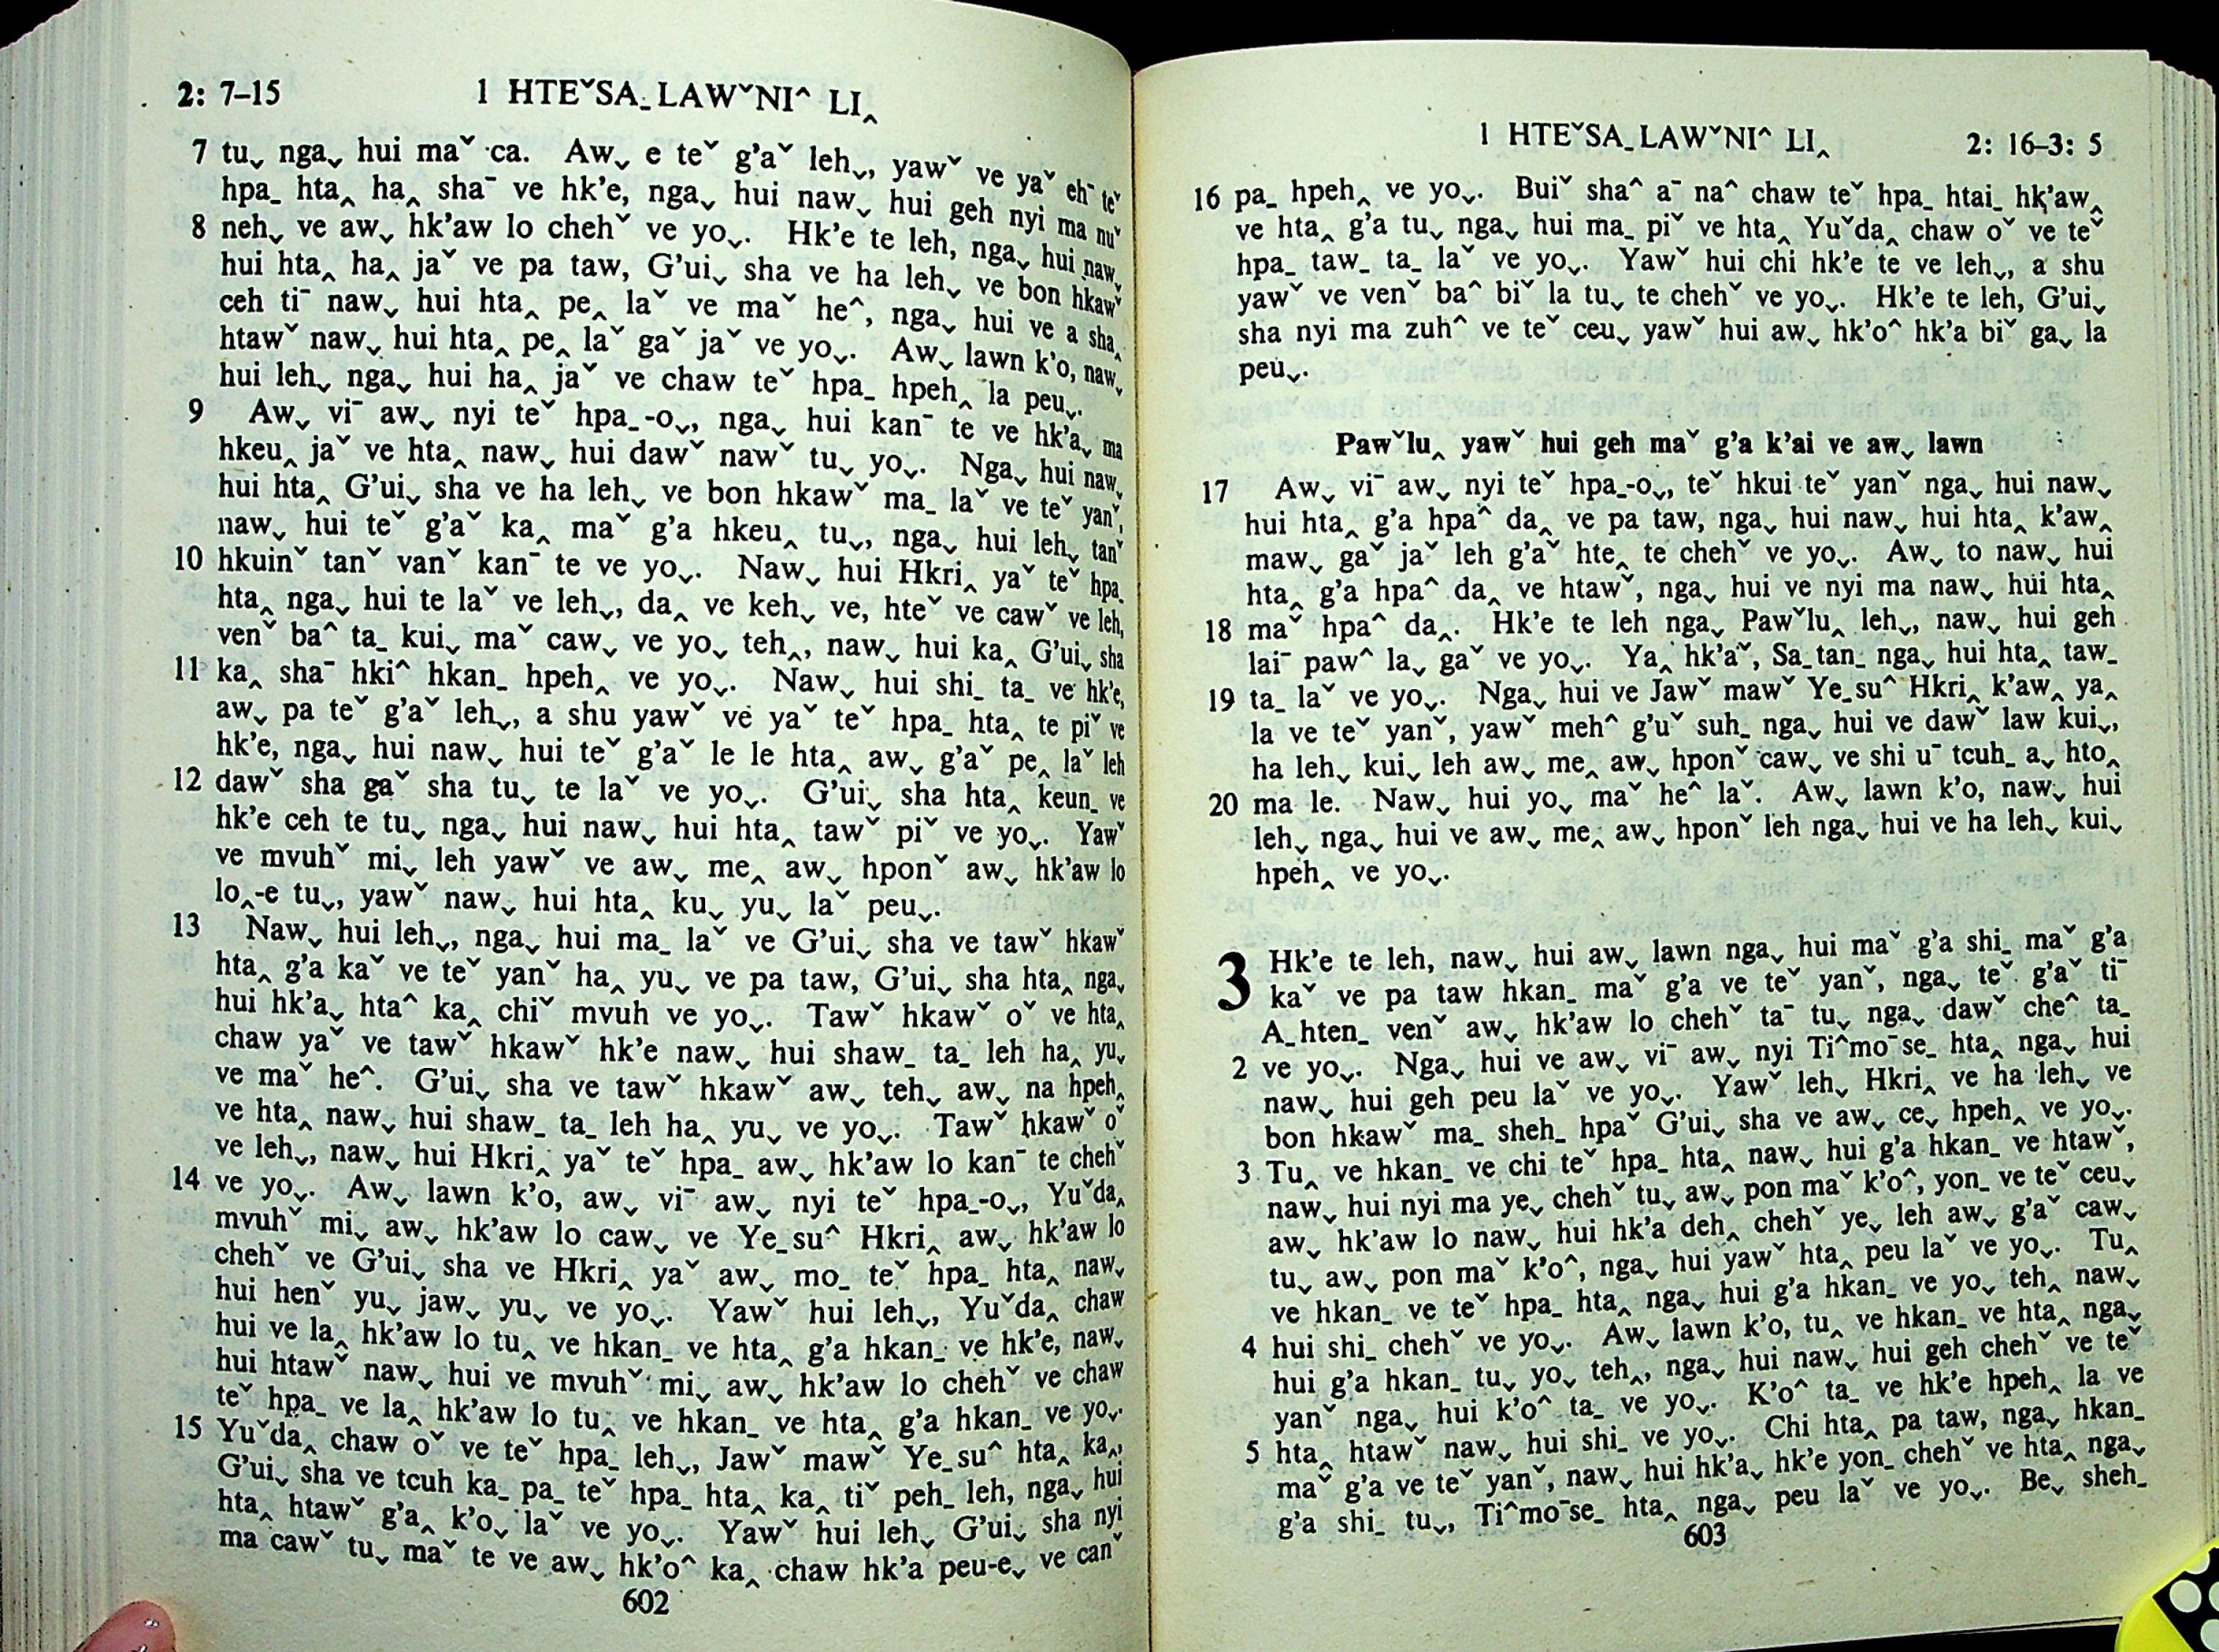 2: 7–15 1 HTEˇSAˍLAWˇNI^ LI‸
7 tuˬ ngaˬ hui maˇ ca. Awˬ e teˇ g’aˇ lehˬ, yawˇ ve yaˇ ehˉ teˇ
hpaˍ hta‸ ha‸ shaˉ ve hk’e, ngaˬ hui nawˬ hui geh nyi ma nuˇ
8 nehˬ ve awˬ hk’aw lo chehˇ ve yoˬ. Hk’e te leh, ngaˬ hui nawˬ
hui hta‸ ha‸ jaˇ ve pa taw, G’uiˬ sha ve ha lehˬ ve bon hkawˇ
ceh tiˉ nawˬ hui hta‸ pe‸ laˇ ve maˇ he^, ngaˬ hui ve a sha‸
htawˇ nawˬ hui hta‸ pe‸ laˇ gaˇ jaˇ ve yoˬ. Awˬ lawn k’o, nawˬ
hui lehˬ ngaˬ hui ha‸ jaˇ ve chaw teˇ hpaˍ hpeh‸ la peuˬ.
9 Awˬ viˉ awˬ nyi teˇ hpaˍ-oˬ, ngaˬ hui kanˉ te ve hk’aˬ ma
hkeu‸ jaˇ ve hta‸ nawˬ hui dawˇ nawˇ tuˬ yoˬ. Ngaˬ hui nawˬ
hui hta‸ G’uiˬ sha ve ha lehˬ ve bon hkawˇ maˍ laˇ ve teˇ yanˇ,
nawˬ hui teˇ g’aˇ ka‸ maˇ g’a hkeu‸ tuˬ, ngaˬ hui lehˬ tanˇ
10 hkuinˇ tanˇ vanˇ kanˉ te ve yoˬ. Nawˬ hui Hkri‸ yaˇ teˇ hpaˍ
hta‸ ngaˬ hui te laˇ ve lehˬ, da‸ ve kehˬ ve, hteˇ ve cawˇ ve lehˬ
venˇ ba^ taˍ kuiˬ maˇ cawˬ ve yoˬ teh‸, nawˬ hui ka‸ G’uiˬ sha
11 ka‸ shaˉ hki^ hkanˍ hpeh‸ ve yoˬ. Nawˬ hui shiˍ taˍ ve hk’e,
awˬ pa teˇ g’aˇ lehˬ, a shu yawˇ ve yaˇ teˇ hpaˍ hta‸ te piˇ ve
hk’e, ngaˬ hui nawˬ hui teˇ g’aˇ le le hta‸ awˬ g’aˇ pe‸ laˇ leh
12 dawˇ sha gaˇ sha tuˬ te laˇ ve yoˬ. G’uiˬ sha hta‸ keunˍ ve
hk’e ceh te tuˬ ngaˬ hui nawˬ hui hta‸ tawˇ piˇ ve yoˬ. Yawˇ
ve mvuhˇ miˬ leh yawˇ ve awˬ me‸ awˬ hponˇ awˬ hk’aw lo
lo‸-e tuˬ, yawˇ nawˬ hui hta‸ kuˬ yuˬ laˇ peuˬ.
13 Nawˬ hui lehˬ, ngaˬ hui maˍ laˇ ve G’uiˬ sha ve tawˇ hkawˇ
hta‸ g’a kaˇ ve teˇ yanˇ ha‸ yuˬ ve pa taw, G’uiˬ sha hta‸ ngaˬ
hui hk’aˬ hta^ ka‸ chiˇ mvuh ve yoˬ. Tawˇ hkawˇ oˇ ve hta‸
chaw yaˇ ve tawˇ hkawˇ hk’e nawˬ hui shawˍ taˍ leh ha‸ yuˬ
ve maˇ he^. G’uiˬ sha ve tawˇ hkawˇ awˬ teh‸ awˬ na hpeh‸
ve hta‸ nawˬ hui shawˍ taˍ leh ha‸ yuˬ ve yoˬ. Tawˇ hkawˇ oˇ
ve lehˬ, nawˬ hui Hkri‸ yaˇ teˇ hpaˍ awˬ hk’aw lo kanˉ te chehˇ
14 ve yoˬ. Awˬ lawn k’o, awˬ viˉ awˬ nyi teˇ hpaˍ-oˬ, Yuˇda‸
mvuhˇ miˬ awˬ hk’aw lo cawˬ ve Yeˍsu^ Hkri‸ awˬ hk’aw lo
chehˇ ve G’uiˬ sha ve Hkri‸ yaˇ awˬ moˍ teˇ hpaˍ hta‸ nawˬ
hui henˇ yuˬ jawˬ yuˬ ve yoˬ. Yawˇ hui lehˬ, Yuˇda‸ chaw
hui ve la‸ hk’aw lo tu‸ ve hkanˍ ve hta‸ g’a hkanˍ ve hk’e, nawˬ
hui htawˇ nawˬ hui ve mvuhˇ miˬ awˬ hk’aw lo chehˇ ve chaw
teˇ hpaˍ ve la‸ hk’aw lo tu‸ ve hkanˍ ve hta‸ g’a hkanˍ ve yoˬ.
15 Yuˇda‸ chaw oˇ ve teˇ hpaˍ lehˬ, Jawˇ mawˇ Yeˍsu^ hta‸ ka‸,
G’uiˬ sha ve tcuh kaˍ paˍ teˇ hpaˍ hta‸ ka‸ tiˇ pehˍ leh, ngaˬ hui
hta‸ htawˇ g’a‸ k’oˬ laˇ ve yoˬ. Yawˇ hui lehˬ G’uiˬ sha nyi
ma cawˇ tuˬ maˇ te ve awˬ hk’o^ ka‸ chaw hk’a peu-eˬ ve canˇ
602
1 HTEˇSAˍLAWˇNI^ LI‸ 2: 16–3: 5
16 paˍ hpeh‸ ve yoˬ. Buiˇ sha^ aˉ na^ chaw teˇ hpaˍ htaiˍ hk’aw‸
ve hta‸ g’a tuˬ ngaˬ hui maˍ piˇ ve hta‸ Yuˇda‸ chaw oˇ ve teˇ
hpaˍ tawˍ taˍ laˇ ve yoˬ. Yawˇ hui chi hk’e te ve lehˬ, a shu
yawˇ ve venˇ ba^ biˇ la tuˬ te chehˇ ve yoˬ. Hk’e te leh, G’uiˬ
sha nyi ma zuh^ ve teˇ ceuˬ yawˇ hui awˬ hk’o^ hk’a biˇ gaˬ la
peuˬ.
Pawˇlu‸ yawˇ hui geh maˇ g’a k’ai ve awˬ lawn
17 Awˬ viˉ awˬ nyi teˇ hpaˍ-oˬ, teˇ hkui teˇ yanˇ ngaˬ hui nawˬ
hui hta‸ g’a hpa^ da‸ ve pa taw, ngaˬ hui nawˬ hui hta‸ k’aw‸
mawˬ gaˇ jaˇ leh g’aˇ hte‸ te chehˇ ve yoˬ. Awˬ to nawˬ hui
hta‸ g’a hpa^ da‸ ve htawˇ, ngaˬ hui ve nyi ma nawˬ hui hta‸
18 maˇ hpa^ da‸. Hk’e te leh ngaˬ Pawˇlu‸ lehˬ, nawˬ hui geh
laiˉ paw^ laˬ gaˇ ve yoˬ. Ya‸ hk’aˇ, Saˍtanˍ ngaˬ hui hta‸ tawˍ
19 taˍ laˇ ve yoˬ. Ngaˬ hui ve Jawˇ mawˇ Yeˍsu^ Hkri‸ k’aw‸ ya‸
la ve teˇ yanˇ, yawˇ meh^ g’uˇ suhˍ ngaˬ hui ve dawˇ law kuiˬ,
ha lehˬ kuiˬ leh awˬ me‸ awˬ hponˇ cawˬ ve shi uˉ tcuhˍ aˬ hto‸
20 ma le. Nawˬ hui yoˬ maˇ he^ laˇ. Awˬ lawn k’o, nawˬ hui
lehˬ ngaˬ hui ve awˬ me‸ awˬ hponˇ leh ngaˬ hui ve ha lehˬ kuiˬ
hpeh‸ ve yoˬ.
3 Hk’e te leh, nawˬ hui awˬ lawn ngaˬ hui maˇ g’a shiˍ maˇ g’a
kaˇ ve pa taw hkanˍ maˇ g’a ve teˇ yanˇ, ngaˬ teˇ g’aˇ tiˉ
Aˍhtenˍ venˇ awˬ hk’aw lo chehˇ taˉ tuˬ ngaˬ dawˇ che^ taˍ
2 ve yoˬ. Ngaˬ hui ve awˬ viˉ awˬ nyi Ti^moˉseˍ hta‸ ngaˬ hui
nawˬ hui geh peu laˇ ve yoˬ. Yawˇ lehˬ, Hkri‸ ve ha lehˬ ve
bon hkawˇ maˍ shehˍ hpaˇ G’uiˬ sha ve awˬ ceˬ hpeh‸ ve yoˬ.
3 Tu‸ ve hkanˍ ve chi teˇ hpaˍ hta‸ nawˬ hui g’a hkanˍ ve htawˇ,
nawˬ hui nyi ma yeˬ chehˇ tuˬ awˬ pon maˇ k’o^, yonˍ ve teˇ ceuˬ
awˬ hk’aw lo nawˬ hui hk’a deh‸ chehˇ yeˬ leh awˬ g’aˇ cawˬ
tuˬ awˬ pon maˇ k’o^, ngaˬ hui yawˇ hta‸ peu laˇ ve yoˬ. Tu‸
ve hkanˍ ve teˇ hpaˍ hta‸ ngaˬ hui g’a hkanˍ ve yoˬ teh‸ nawˬ
4 hui shiˍ chehˇ ve yoˬ. Awˬ lawn k’o, tu‸ ve hkanˍ ve hta‸ ngaˬ
hui g’a hkanˍ tuˬ yoˬ teh‸, ngaˬ hui nawˬ hui geh chehˇ ve teˇ
yanˇ ngaˬ hui k’o^ taˍ ve yoˬ. K’o^ taˍ ve hk’e hpeh‸ la ve
5 hta‸ htawˇ nawˬ hui shiˍ ve yoˬ. Chi hta‸ pa taw, ngaˬ hkanˍ
maˇ g’a ve teˇ yanˇ, nawˬ hui hk’aˬ hk’e yonˍ chehˇ ve hta‸ ngaˬ
g’a shiˍ tuˬ, Ti^moˉseˍ hta‸ ngaˬ peu laˇ ve yoˬ. Beˬ shehˍ
603